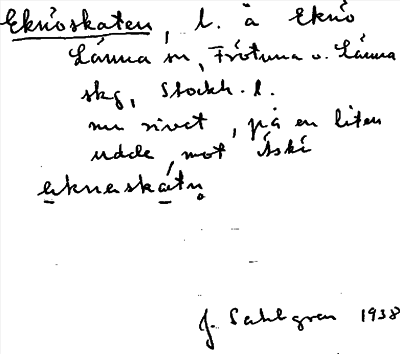 Eknöskaten, l. å Eknö
Länna sn, Frötuna o. Länna
skg, Stockh. l.
nu rivet, på en liten
udde, mot Åski
ekneskátn̥
J. Sahlgren 1938